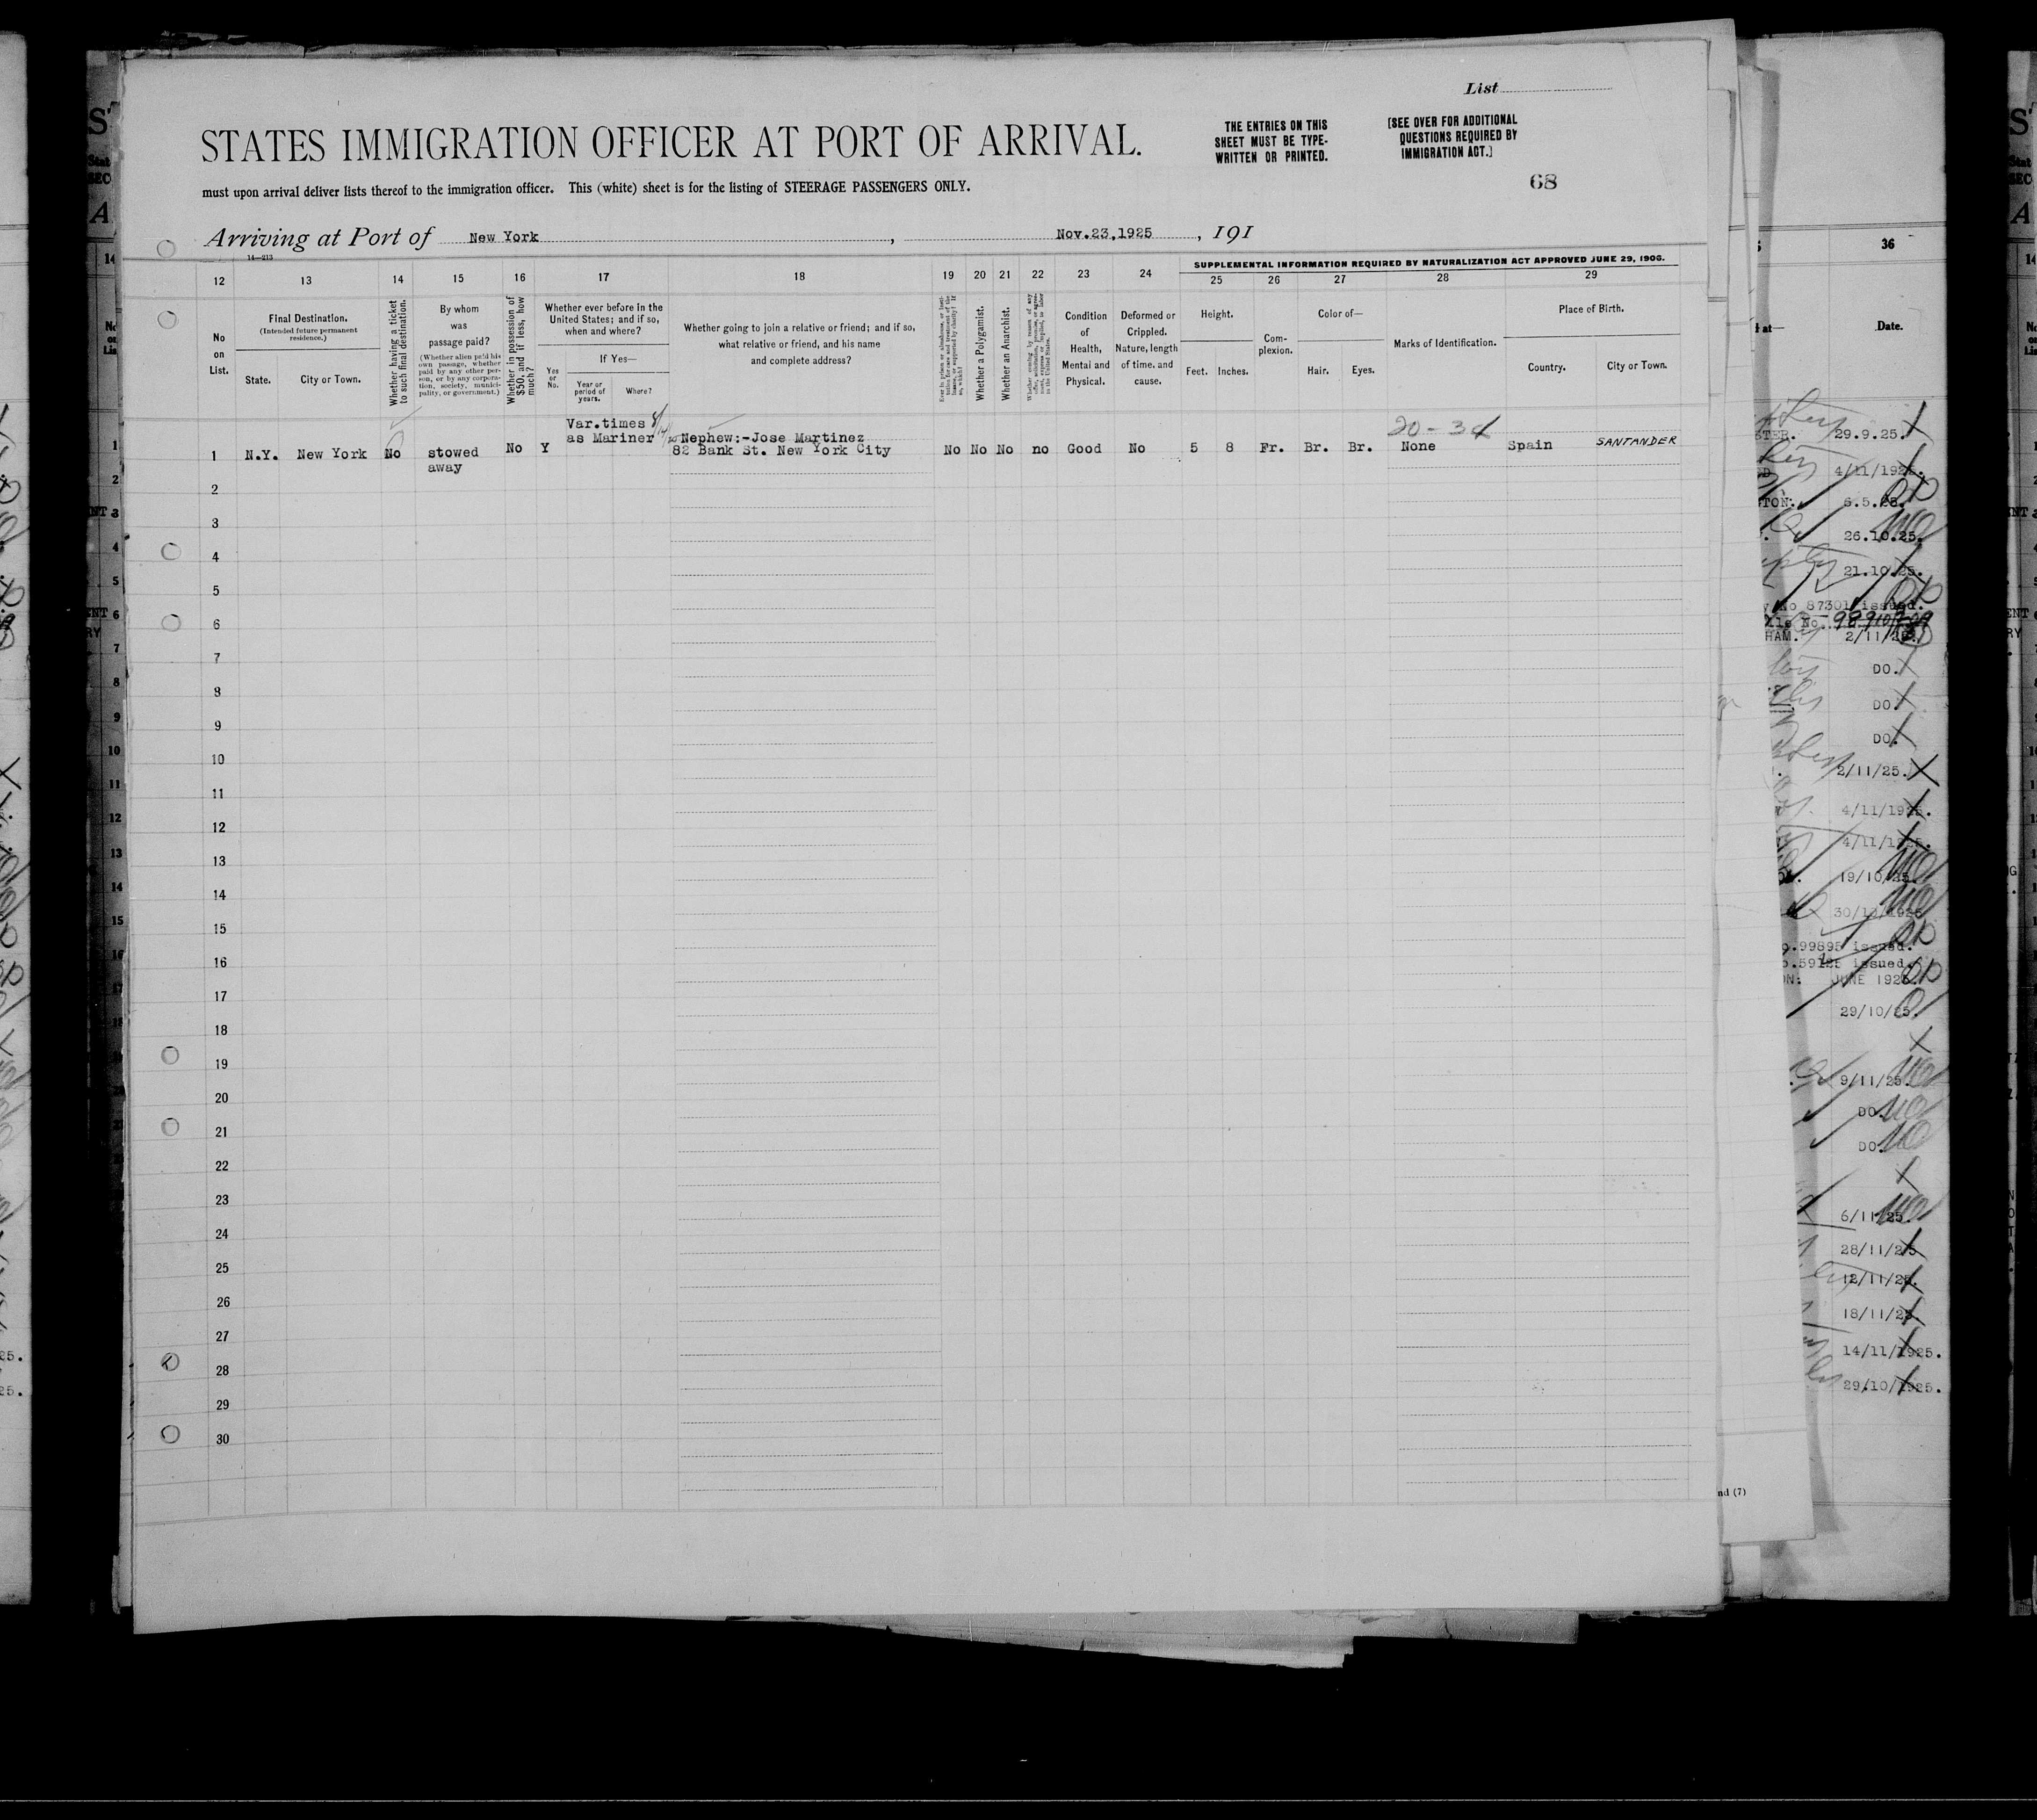 List
STATES IMMIGRATION OFFICER AT PORT OF ARRIVAL.
THE ENTRIES ON THIS
SHEET MUST BE TYPE-
WRITTEN OR PRINTED.
[SEE OVER FOR ADDITIONAL
QUESTIONS REQUIRED BY
IMMIGRATION ACT.]
must upon arrival deliver lists thereof to the immigration officer. This (white) sheet is for the listing of STEERAGE PASSENGERS ONLY.
68
Arriving at Port of New York, Nov.23,1925, 191
14—213
SUPPLEMENTAL INFORMATION REQUIRED BY NATURALIZATION ACT APPROVED JUNE 29, 1906.
12 13 14 15 16 17 18 19 20 21 22 23 24 25 26 27 28 29
No on List.
Final Destination.
(Intended future permanent residence.)
State. City or Town.
Whether having a ticket to such final destination.
By whom was passage paid?
(Whether alien paid his own passage, whether paid by any other person, or by any corporation, society, municipality, or government.)
Whether in possession of $50, and if less, how much?
Whether ever before in the United States; and if so, when and where?
Yes or No.
If Yes—
Year or period of years.
Where?
Whether going to join a relative or friend; and if so, what relative or friend, and his name and complete address?
Whether a Polygamist.
Whether an Anarchist.
Condition of Health, Mental and Physical.
Deformed or Crippled. Nature, length of time, and cause.
Height.
Feet. Inches.
Complexion.
Color of—
Hair. Eyes.
Marks of Identification.
Place of Birth.
Country. City or Town.
Var.times
as Mariner
20-34
1 N.Y. New York No stowed away No Y Nephew:-Jose Martinez
82 Bank St. New York City No No No no Good No 5 8 Fr. Br. Br. None Spain SANTANDER
2
3
4
5
6
7
8
9
10
11
12
13
14
15
16
17
18
19
20
21
22
23
24
25
26
27
28
29
30
36
Date.
29.9.25.
4/11/1925.
6.5.25.
26.10.25.
21.10.25.
No 87301 issued.
HAM. 2/11/25.
DO.
DO.
DO.
2/11/25.
4/11/1925.
4/11/1925.
19/10/25.
99895 issued.
59125 issued.
JUNE 1925.
29/10/25.
9/11/25.
DO.
DO.
6/11/25.
28/11/25
12/11/25.
18/11/25
14/11/1925.
29/10/1925.
nd (7)